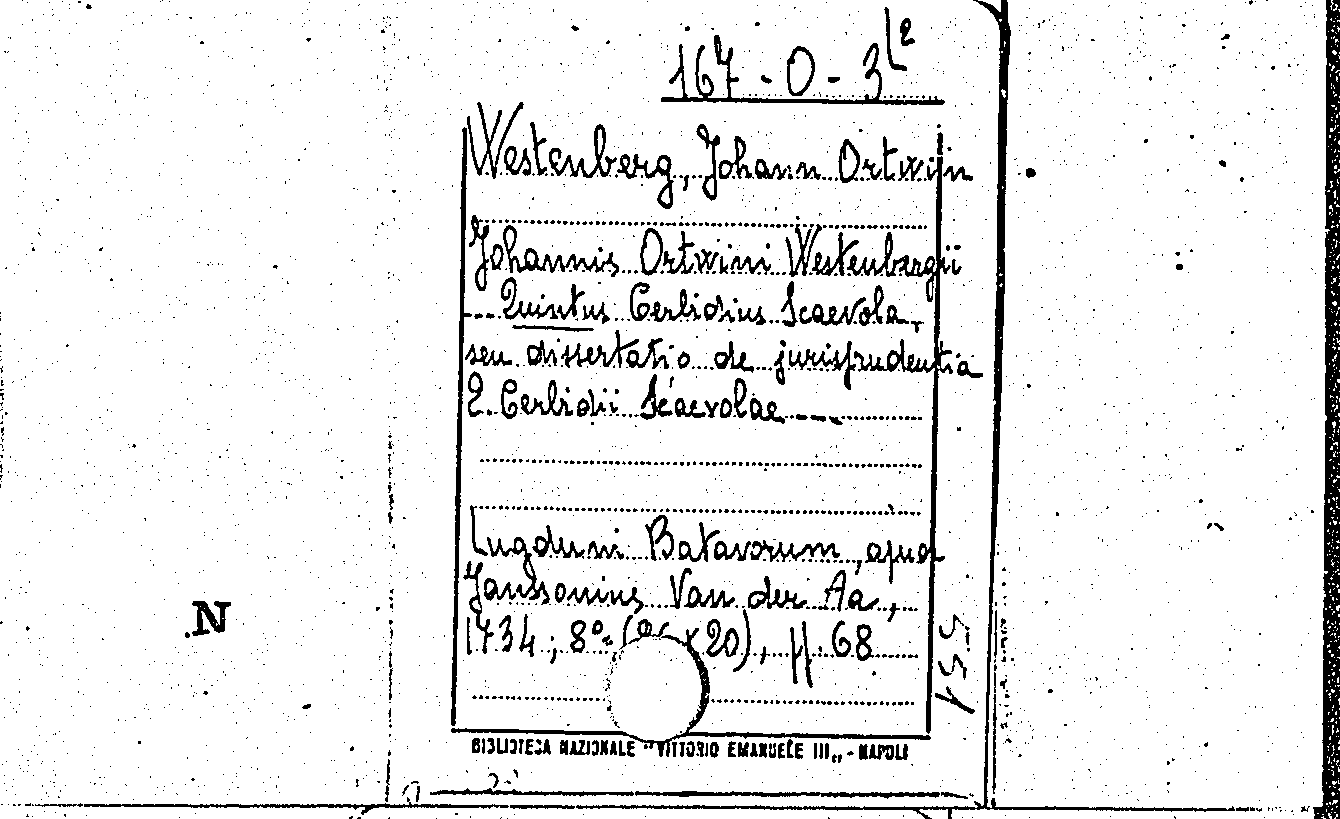 167-O-3 L2
Westenberg, Johann Ortwijn
Johannis Ortwini Westenbergii
--- Quintus Cerbidius Scaevola,
seu dissertatio de jurisprudentia
Q. Cerbidii Scaevolae ----
Lugduni Batavorum, apud
Janssonius Van der Aa,
1734; 8º= ( x20), pp. 68
551
.N
BIBLIOTECA NAZIONALE "VITTORIO EMANUELE III„ - NAPOLI